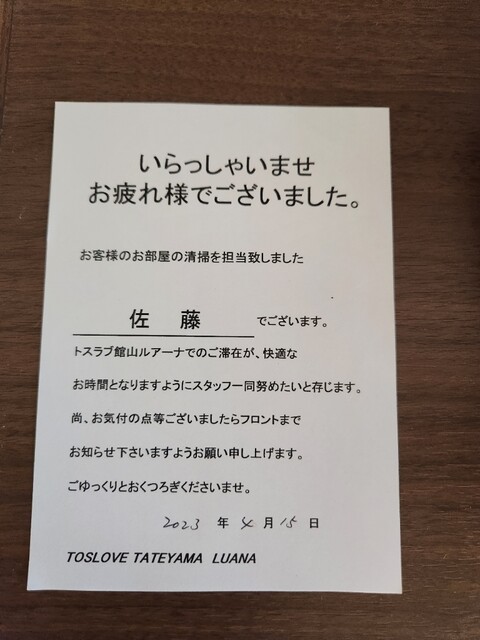 いらっしゃいませ
お疲れ様でございました。
お客様のお部屋の清掃を担当致しました
佐 藤 でございます。
トスラブ館山ルアーナでのご滞在が、快適な
お時間となりますようにスタッフ一同努めたいと存じます。
尚、お気付の点等ございましたらフロントまで
お知らせ下さいますようお願い申し上げます。
ごゆっくりとおくつろぎくださいませ。
2023 年 4 月 15 日
TOSLOVE TATEYAMA LUANA